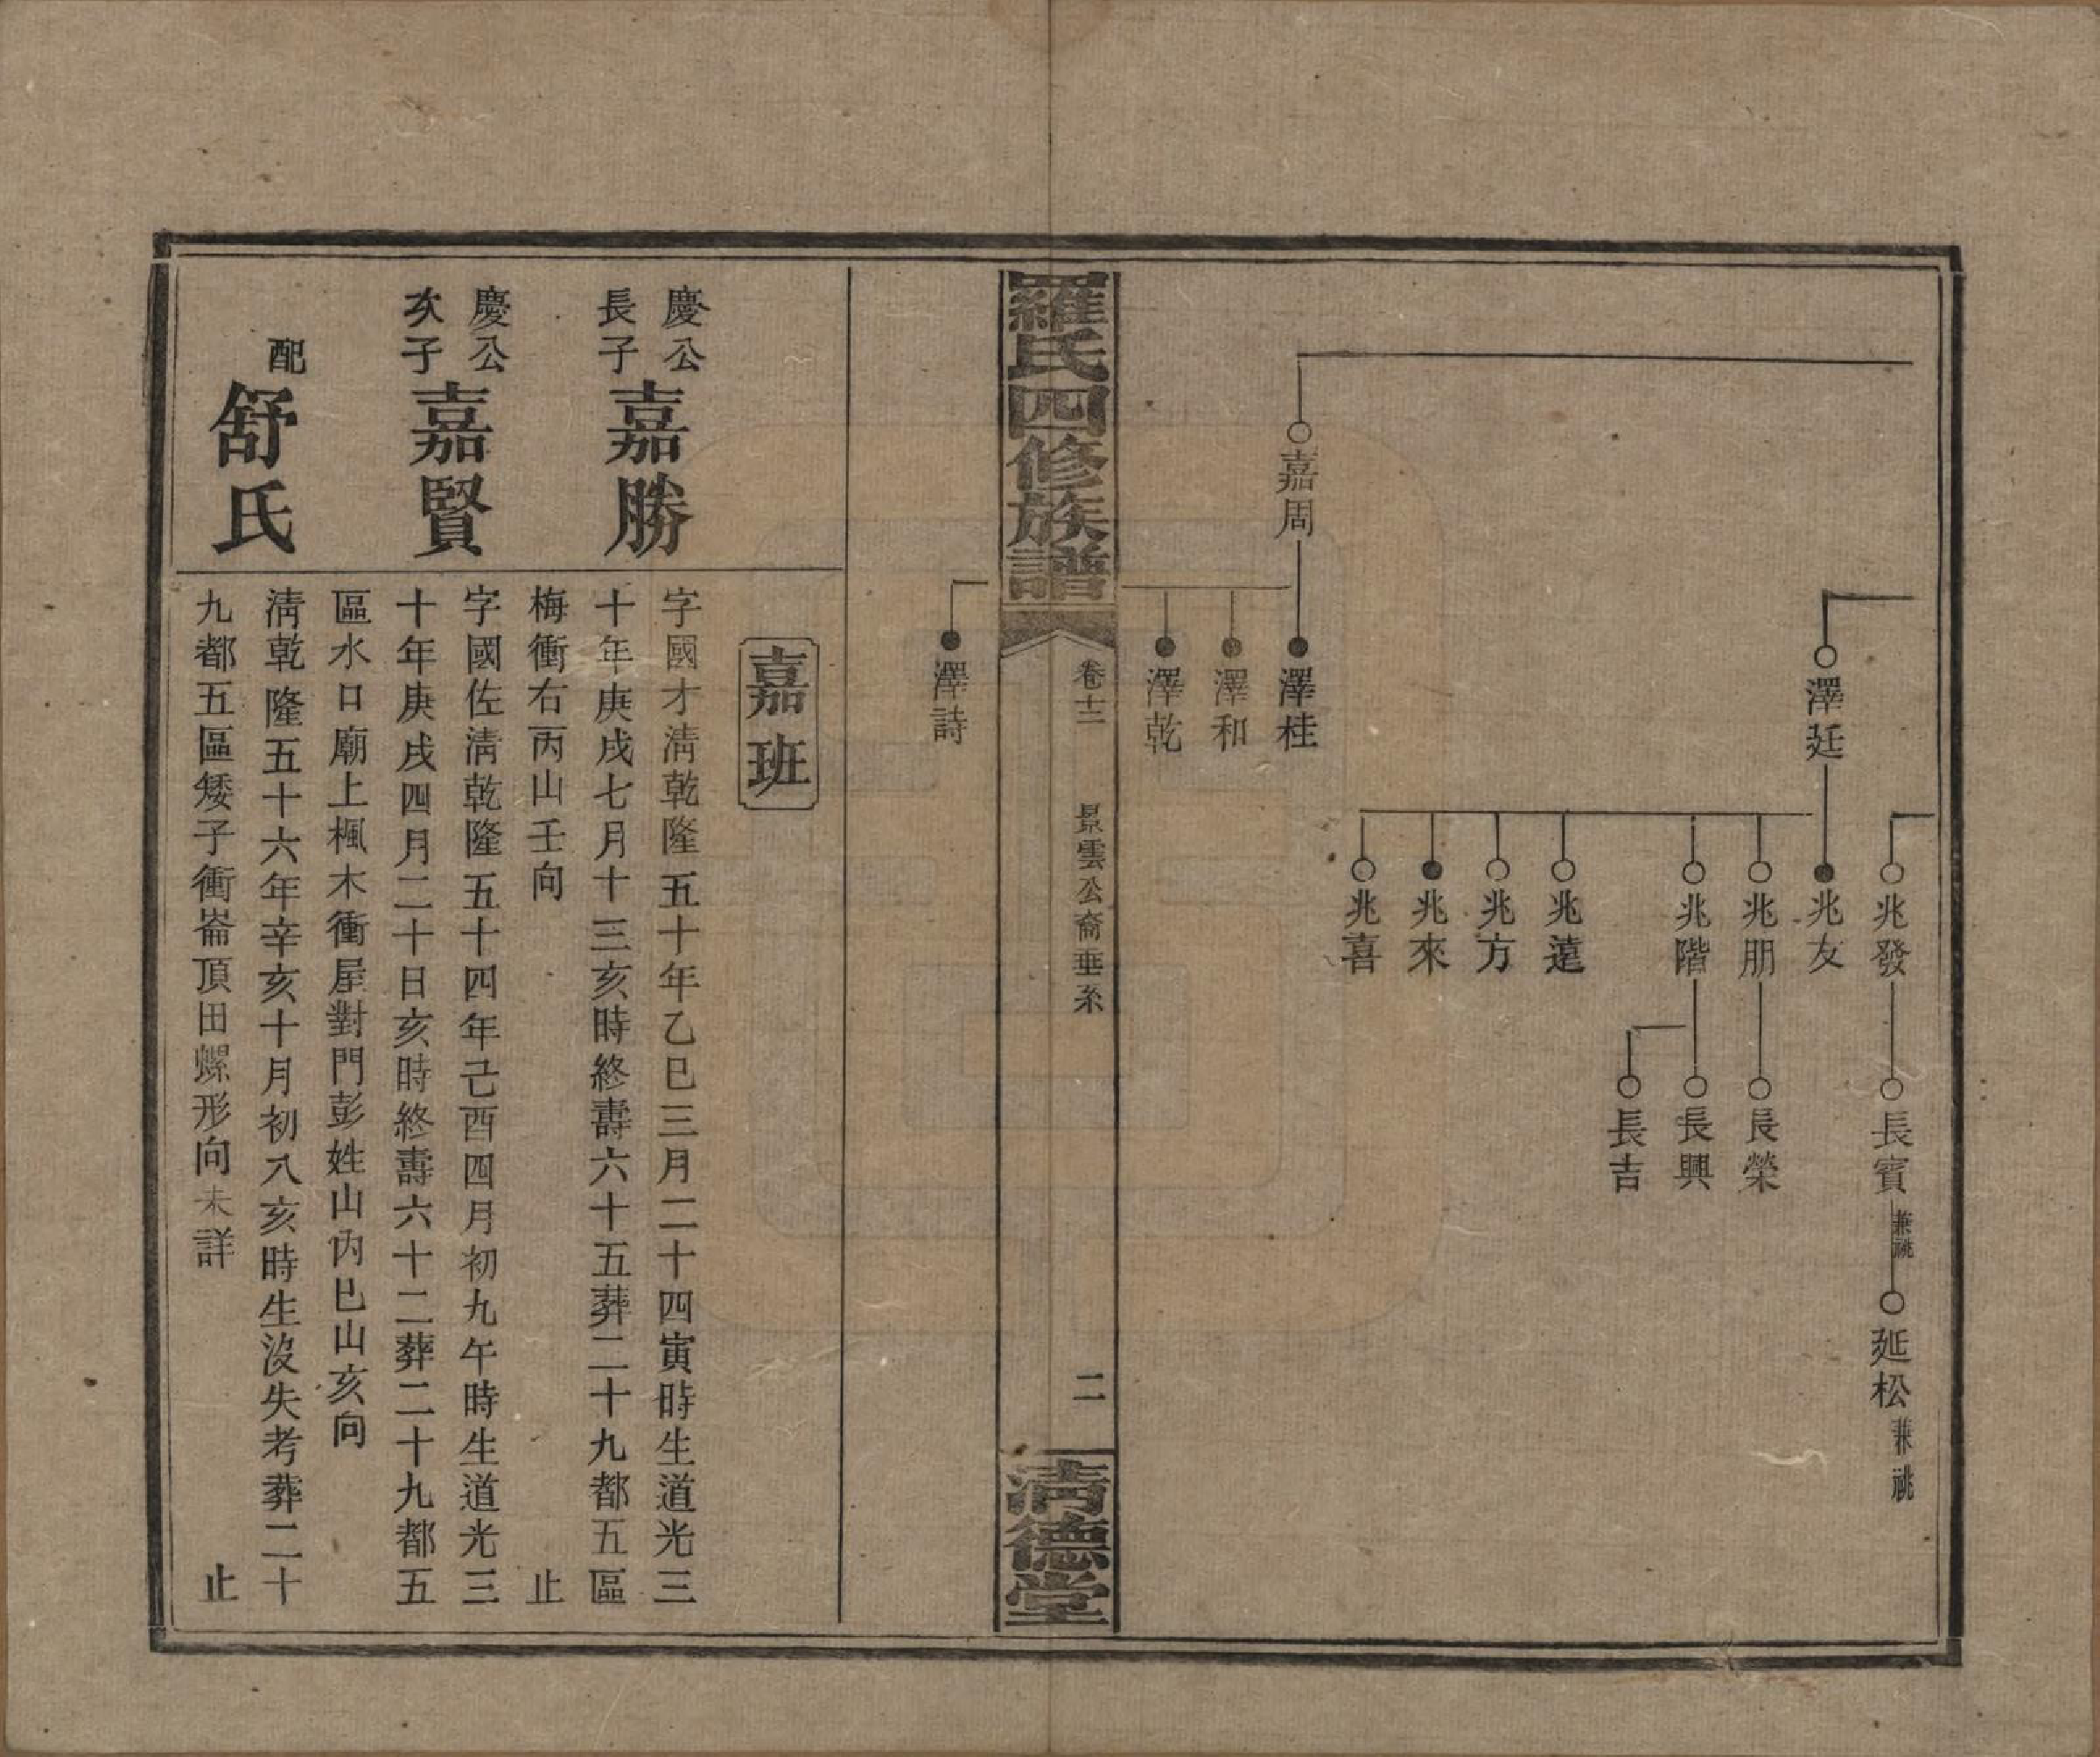 兆發
長賓
兼祧
延松
兼祧
澤廷
兆友
兆朋
長榮
兆階
長興
長吉
兆遠
兆方
兆來
兆喜
嘉周
澤桂
澤和
澤乾
羅氏四修族譜
卷十二
景雲公裔垂系
二
清德堂
澤詩
嘉班
慶公
長子
嘉勝
字國才淸乾隆五十年乙巳三月二十四寅時生道光三
十年庚戌七月十三亥時終壽六十五葬二十九都五區
梅衝右丙山壬向
止
慶公
次子
嘉賢
字國佐淸乾隆五十四年己酉四月初九午時生道光三
十年庚戌四月二十日亥時終壽六十二葬二十九都五
區水口廟上楓木衝屋對門彭姓山內巳山亥向
配
舒氏
淸乾隆五十六年辛亥十月初八亥時生沒失考葬二十
九都五區矮子衝崙頂田螺形向未詳
止